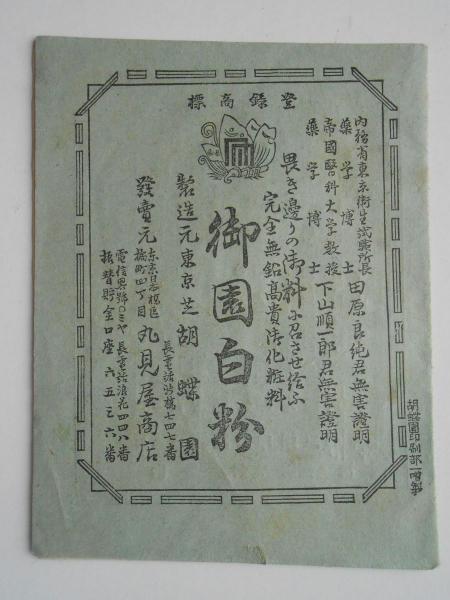 登録商標
内務省東京衛生試験所長
薬学博士
田原良純君無害證明
帝國醫科大学教授
薬学博士
下山順一郎君無害證明
畏き邊りの御料に召させ給ふ
完全無鉛高貴御化粧料
御園白粉
製造元東京芝胡蝶園
長電話芝七四七番
發賣元
東京日本橋区
橘町四丁目
丸見屋商店
電信畧號(ミヤ)長電話浪花四四八番
振替貯金口座六五三六番
胡蝶園印刷部